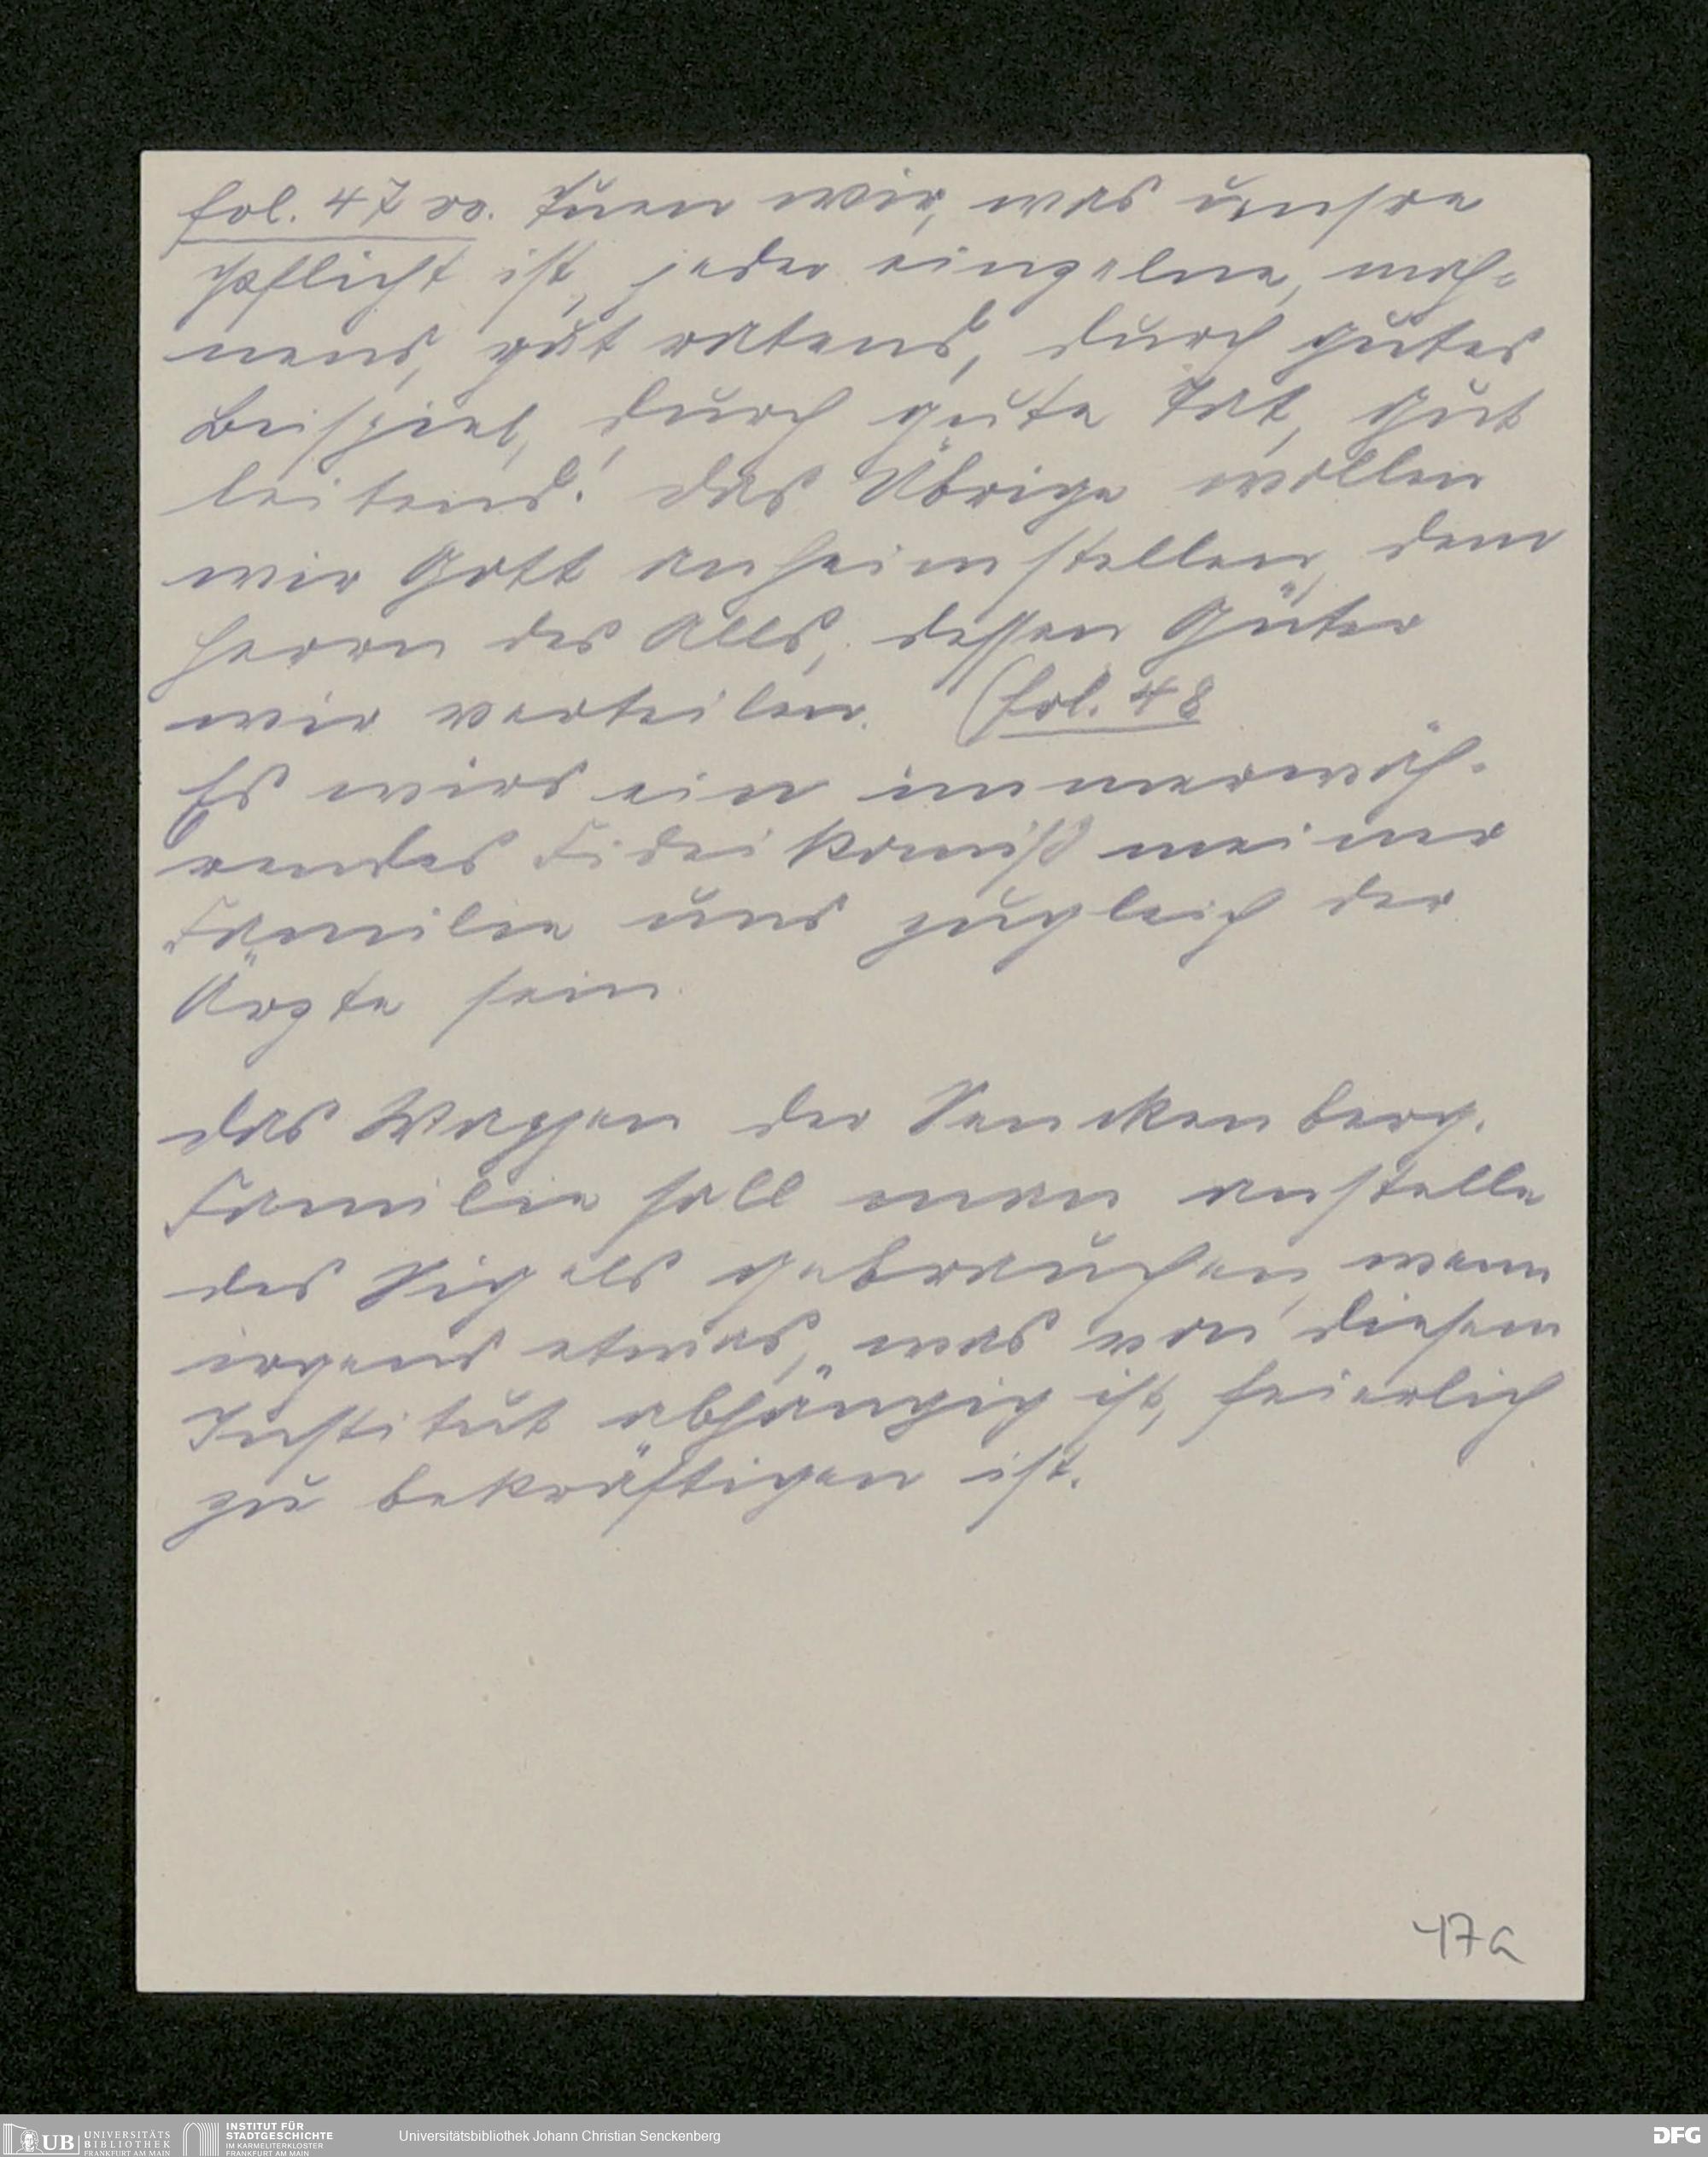 fol. 47 ro. Tuen wir, was unsre
Pflicht ist, jeder einzelne, mah-
nend, gut ratend, durch gutes
Beispiel, durch gute Tat, gut
leitend! Das Übrige wollen
wir Gott anheimstellen, dem
Herrn des Alls, dessen Güter
wir verteilen. (fol. 48
Es wird ein immerwäh-
rendes Fideikomiß meiner
Familie und zugleich der
Ärzte sein.
Das Wappen der Senckenberg.
Familie soll man anstelle
des Sigels gebrauchen, wenn
irgend etwas, was von diesem
Institut abhängig ist, feierlich
zu bekräftigen ist.
47a
UB UNIVERSITÄTS
BIBLIOTHEK
FRANKFURT AM MAIN
INSTITUT FÜR
STADTGESCHICHTE
IM KARMELITERKLOSTER
FRANKFURT AM MAIN
Universitätsbibliothek Johann Christian Senckenberg
DFG